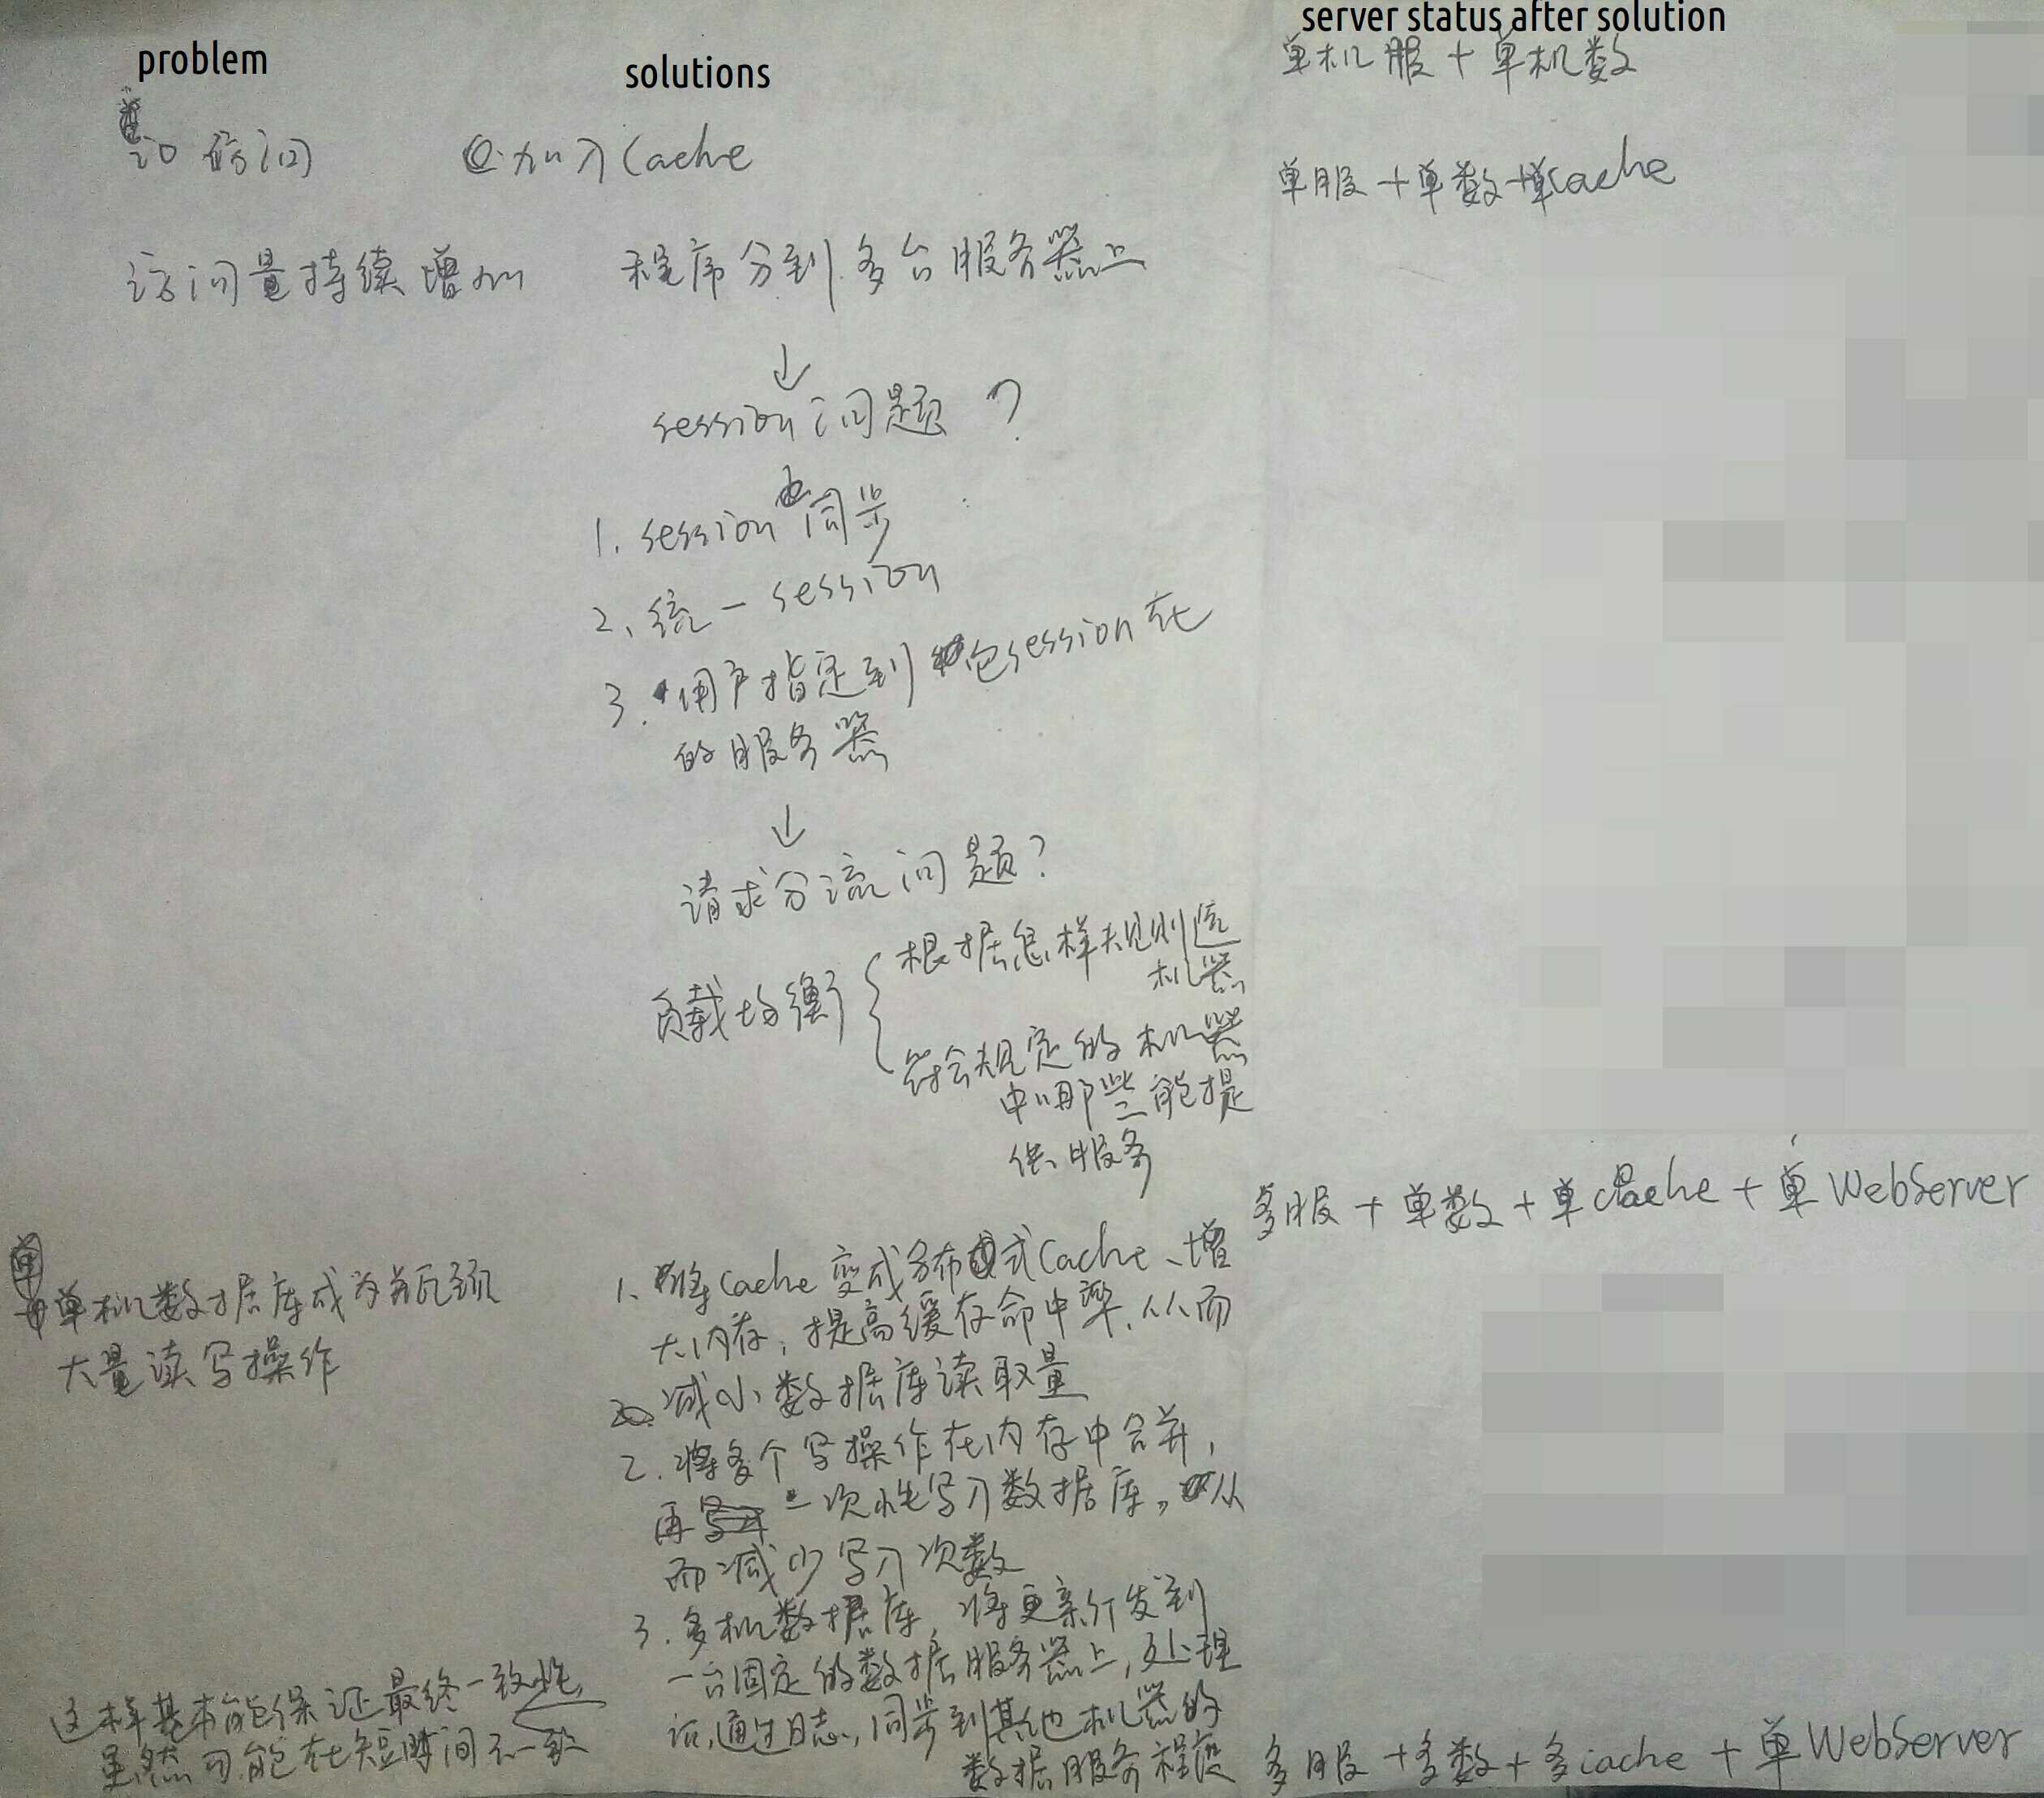 problem
solutions
server status after solution
单机服 + 单机数
访问
加入Cache
单服 + 单数 + 单cache
访问量持续增加
程序分到多台服务器上
session问题?
1. session同步
2、统一session
3. 用户指定到包session在
的服务器
请求分流问题?
负载均衡
根据怎样规则选
机器
符合规定的机器
中哪些能提
供服务
多服 + 单数 + 单cache + 单WebServer
单机数据库成为瓶颈
大量读写操作
1、将Cache变成分布式Cache、增
大内存,提高缓存命中率,从而
减小数据库读取量
2. 将多个写操作在内存中合并,
再一次性写入数据库,从
而减少写入次数
3. 多机数据库,将更新分发到
一台固定的数据服务器上,处理
这样基本能保证最终一致性
虽然可能在短时间不一致
,通过日志,同步到其他机器的
数据服务程度
多服 + 多数 + 多cache + 单WebServer